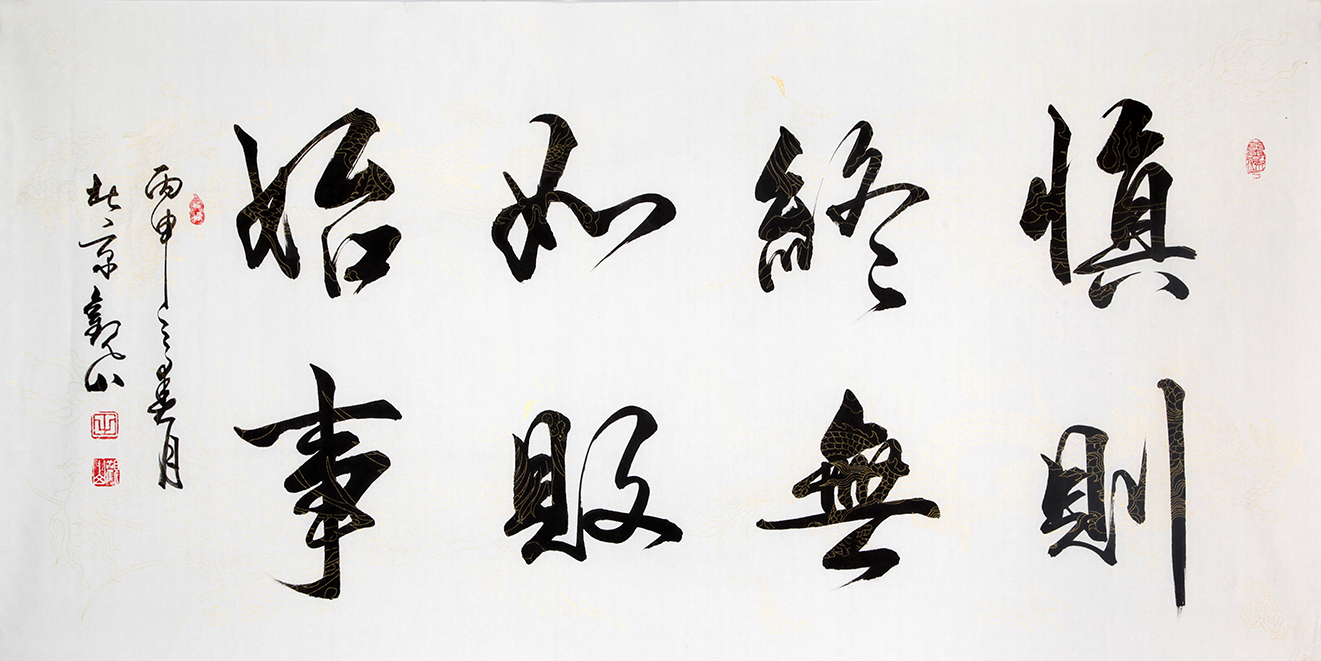 慎終如始
則無敗事
丙申春月
京山